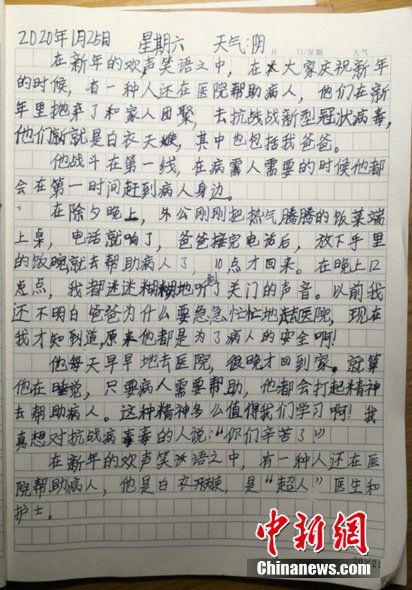 2020年1月25日 星期六 天气:阴
月 日/星期 天气
在新年的欢声笑语之中，在大家庆祝新年
的时候，有一种人还在医院帮助病人，他们在新
年里抛弃了和家人团聚，去抗战战新型冠状病毒，
他们就是白衣天使，其中也包括我爸爸。
他战斗在第一线，在病人需要的时候他都
会在第一时间赶到病人身边。
在除夕晚上，外公刚刚把热气腾腾的饭菜端
上桌，电话就响了，爸爸接完电话后，放下手里
的饭碗就去帮助病人了，10点才回来。在晚上12
点点，我都迷迷糊糊地听到了关门的声音。以前我
还不明白爸爸为什么要急急忙忙地去医院，现在
我才知到道原来他都是为了病人的安全啊！
他每天早早地去医院，很晚才回到家。就算
他在睡觉，只要病人需要帮助，他都会打起精神
去帮助病人。这种精神多么值得我们学习啊！我
真想对抗战病毒的人说：“你们辛苦了”
在新年的欢声笑语之中，有一种人还在医
院帮助病人，他是白衣天使，是“超人”医生和
护士。
中新网
Chinanews.com